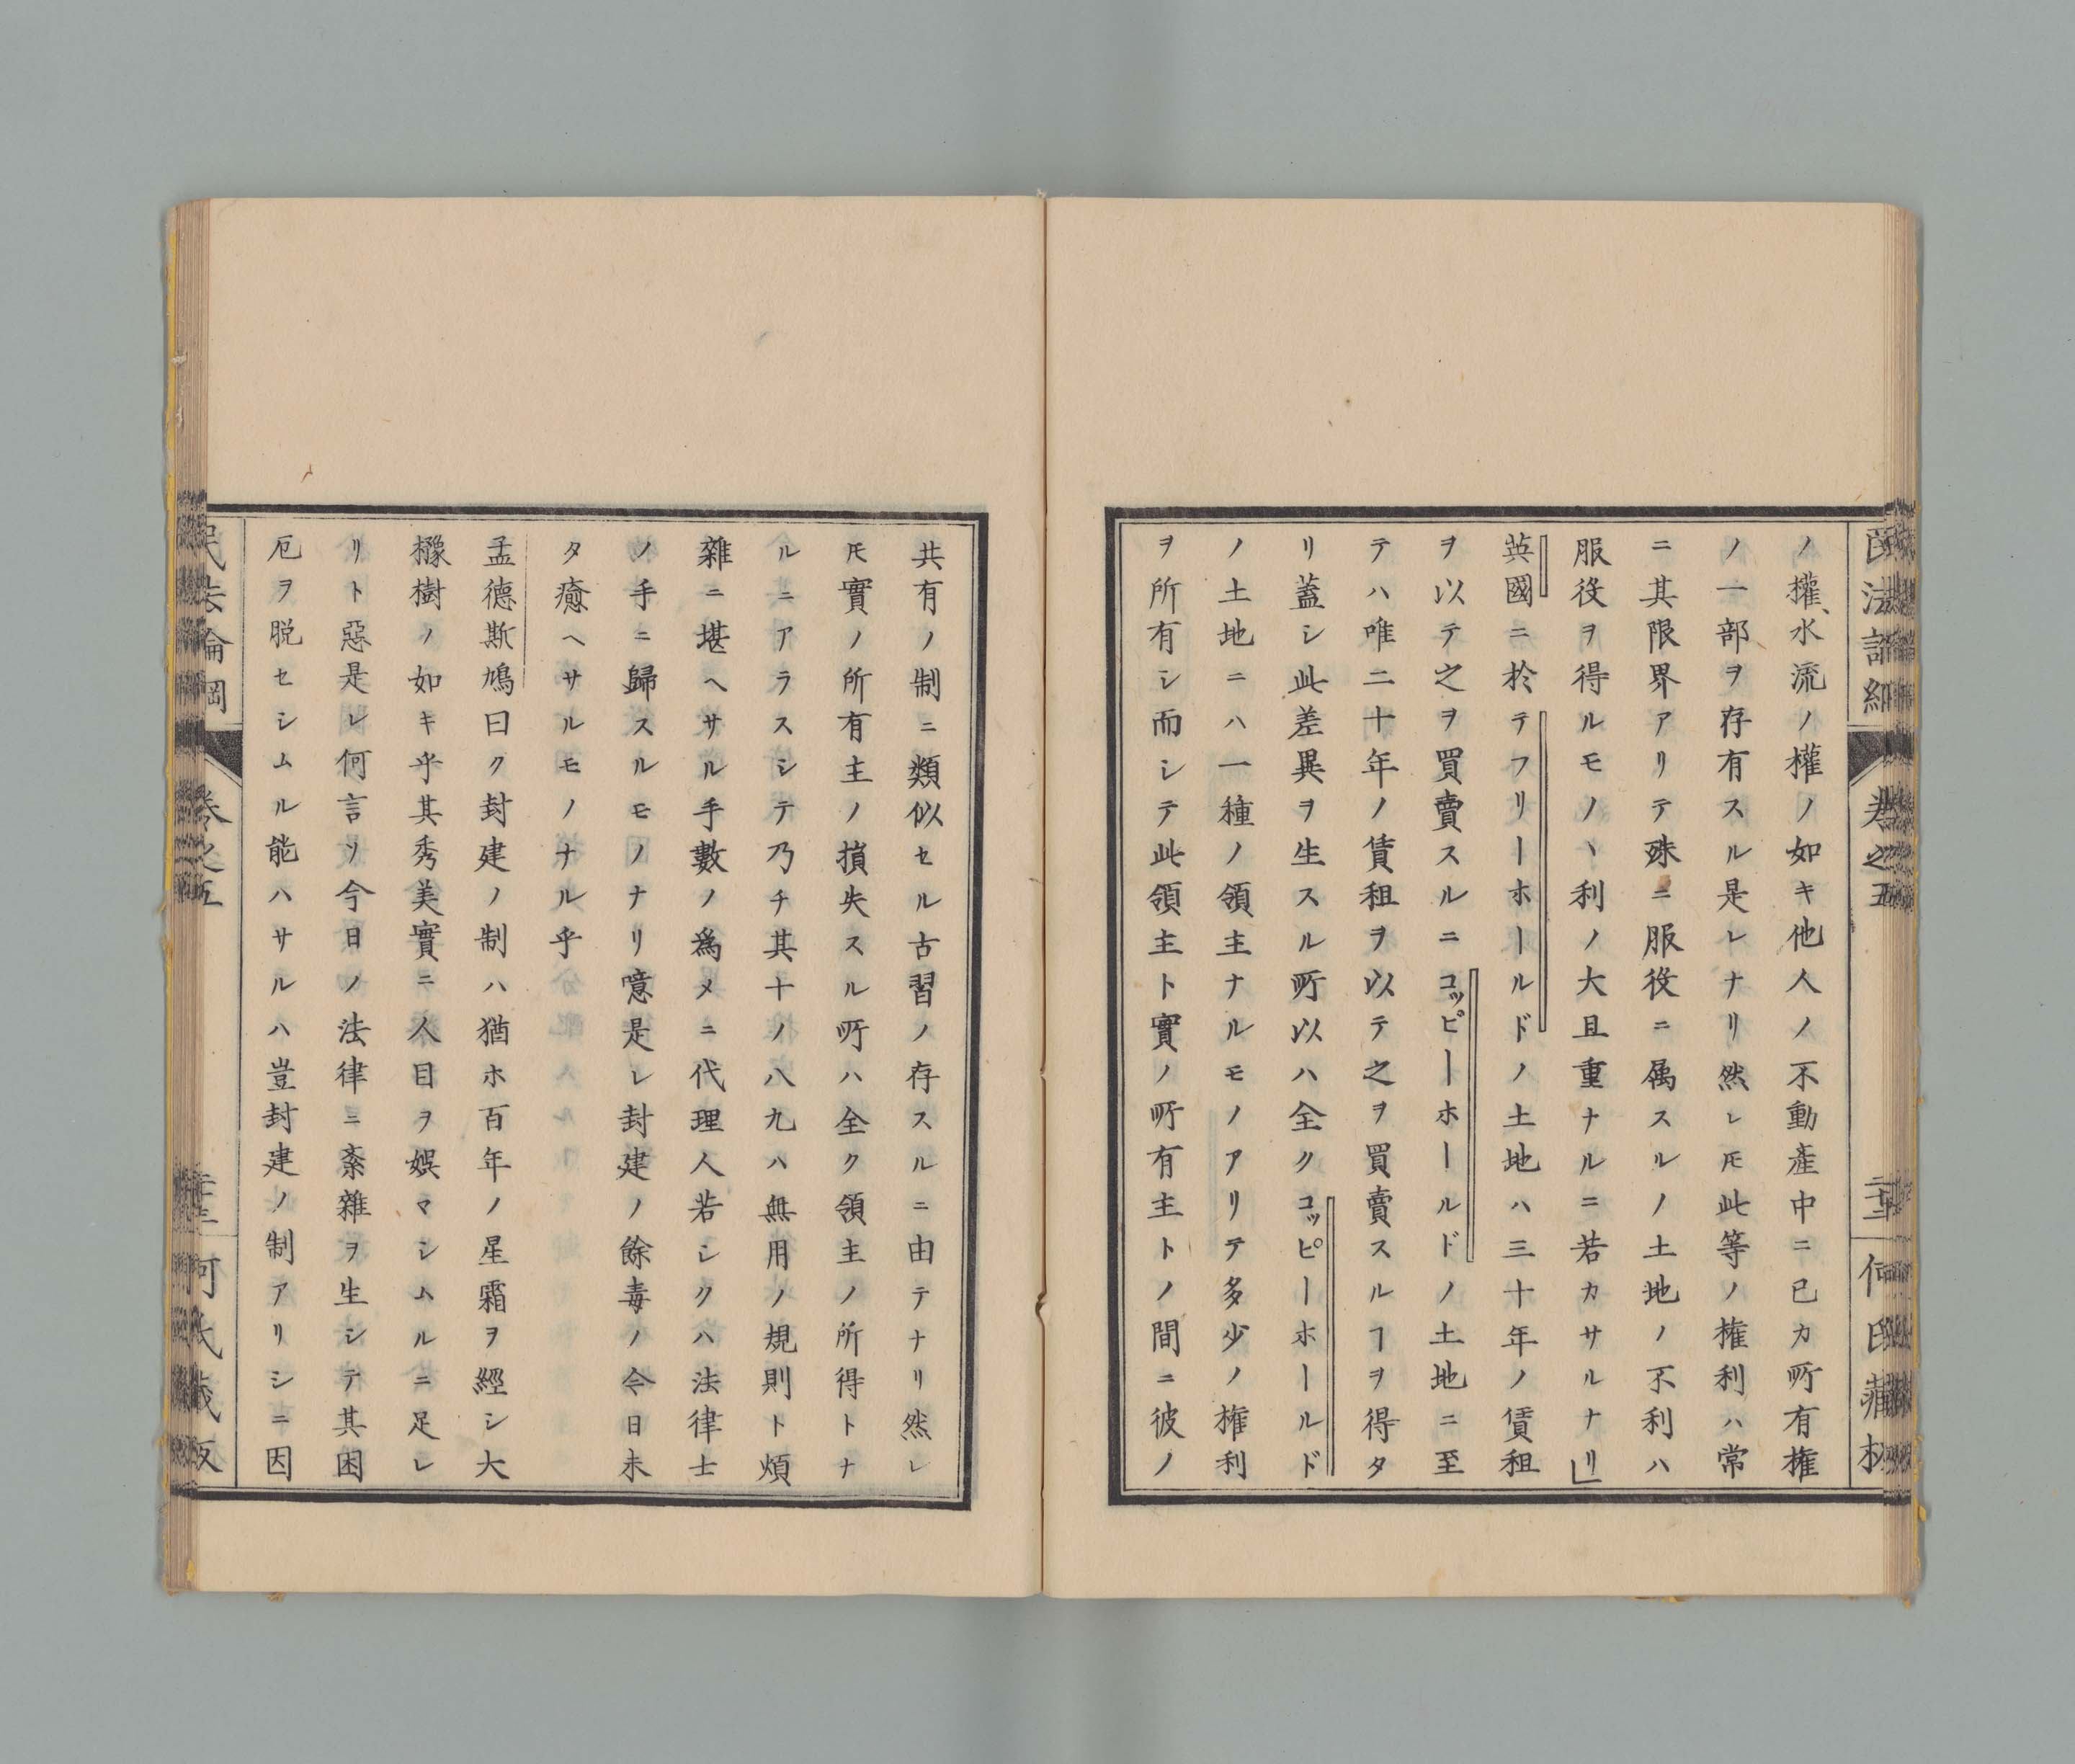 ノ權、水流ノ權ノ如キ他人ノ不動産中ニ已カ所有権
ノ一部ヲ存有スル是レナリ然レ𪜈此等ノ権利ハ常
ニ其限界アリテ殊ニ服役ニ属スルノ土地ノ不利ハ
服役ヲ得ルモノヽ利ノ大且重ナルニ若カサルナリ」
英國ニ於テフリーホールドノ土地ハ三十年ノ賃租
ヲ以テ之ヲ買賣スルニコッピーホールドノ土地ニ至
テハ唯二十年ノ賃租ヲ以テ之ヲ買賣スルヿヲ得タ
リ蓋シ此差異ヲ生スル所以ハ全クコッピーホールド
ノ土地ニハ一種ノ領主ナルモノアリテ多少ノ権利
ヲ所有シ而シテ此領主ト實ノ所有主トノ間ニ彼ノ
共有ノ制ニ類似セル古習ノ存スルニ由テナリ然レ
𪜈實ノ所有主ノ損失スル所ハ全ク領主ノ所得トナ
ルニアラスシテ乃チ其十ノ八九ハ無用ノ規則ト煩
雜ニ堪ヘサル手數ノ爲メニ代理人若シクハ法律士
ノ手ニ歸スルモノナリ噫是レ封建ノ餘毒ノ今日未
タ癒ヘサルモノナル乎
孟德斯鳩曰ク封建ノ制ハ猶ホ百年ノ星霜ヲ經シ大
橡樹ノ如キ乎其秀美實ニ人目ヲ娯マシムルニ足レ
リト惡是レ何言ソ今日ノ法律ニ紊雜ヲ生シテ其困
厄ヲ脱セシムル能ハサルハ豈封建ノ制アリシニ因
民法論綱 卷之五
何氏藏版